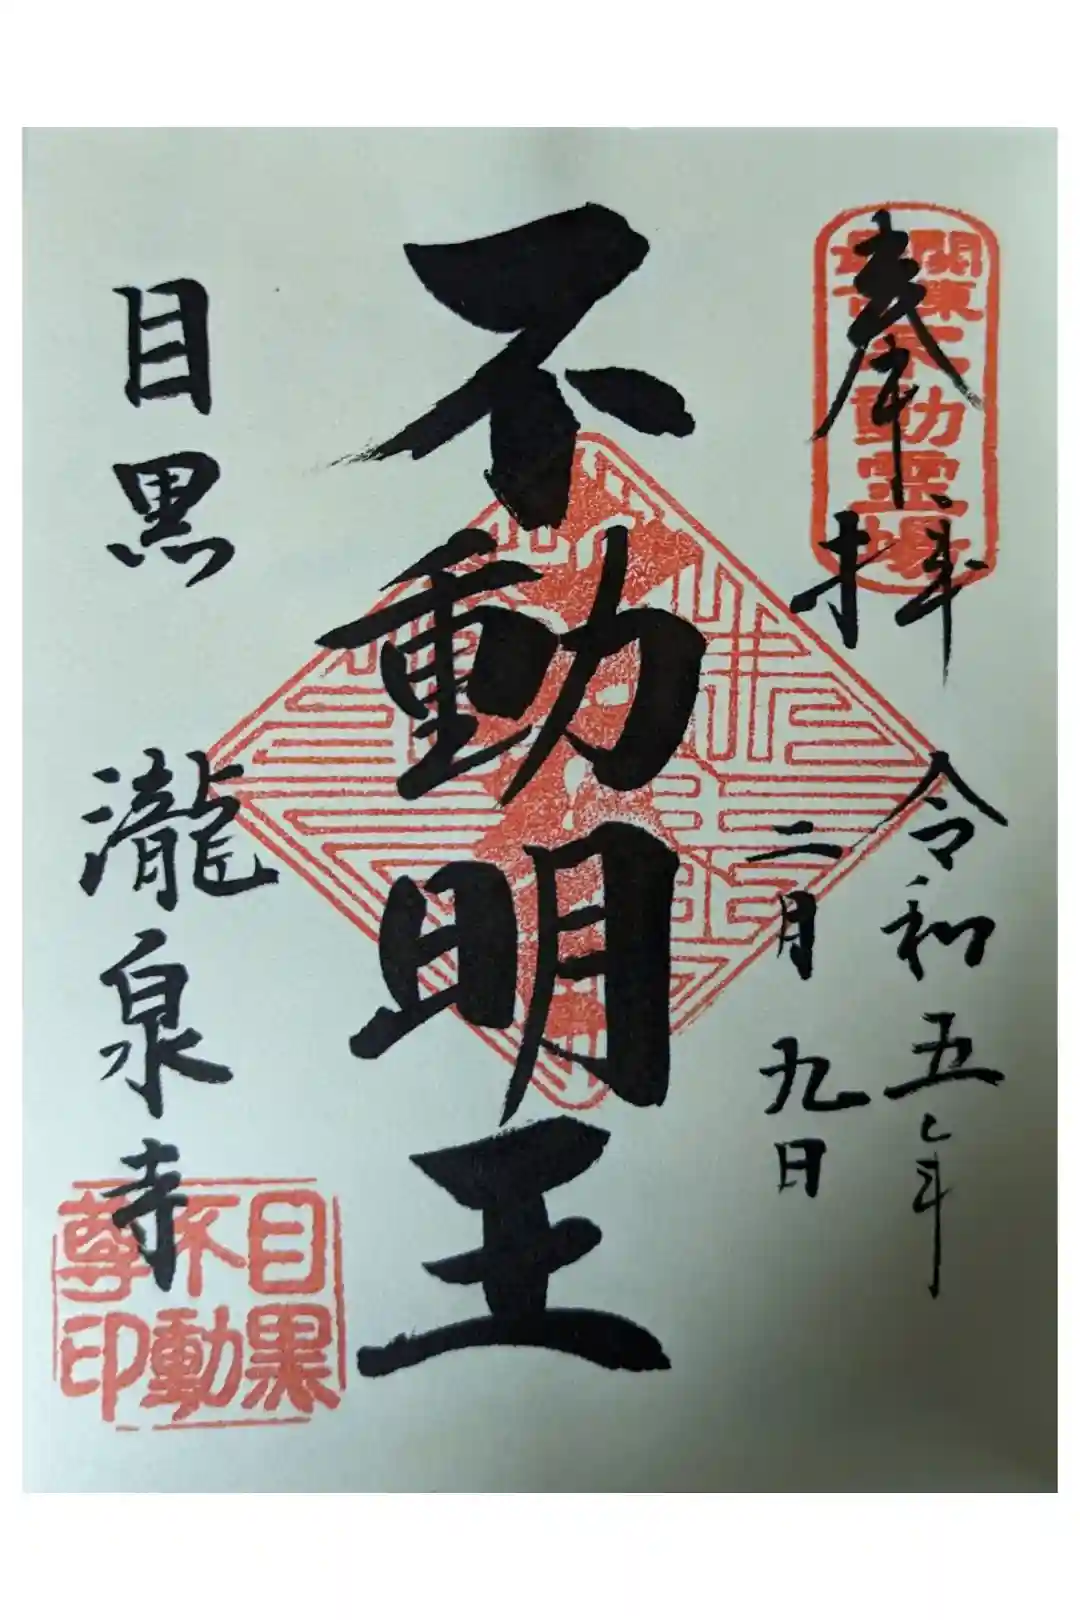 奉拝
関東最古
不動霊場
令和五年
二月九日
不動明王
目黒 瀧泉寺
目黒
不動
尊印